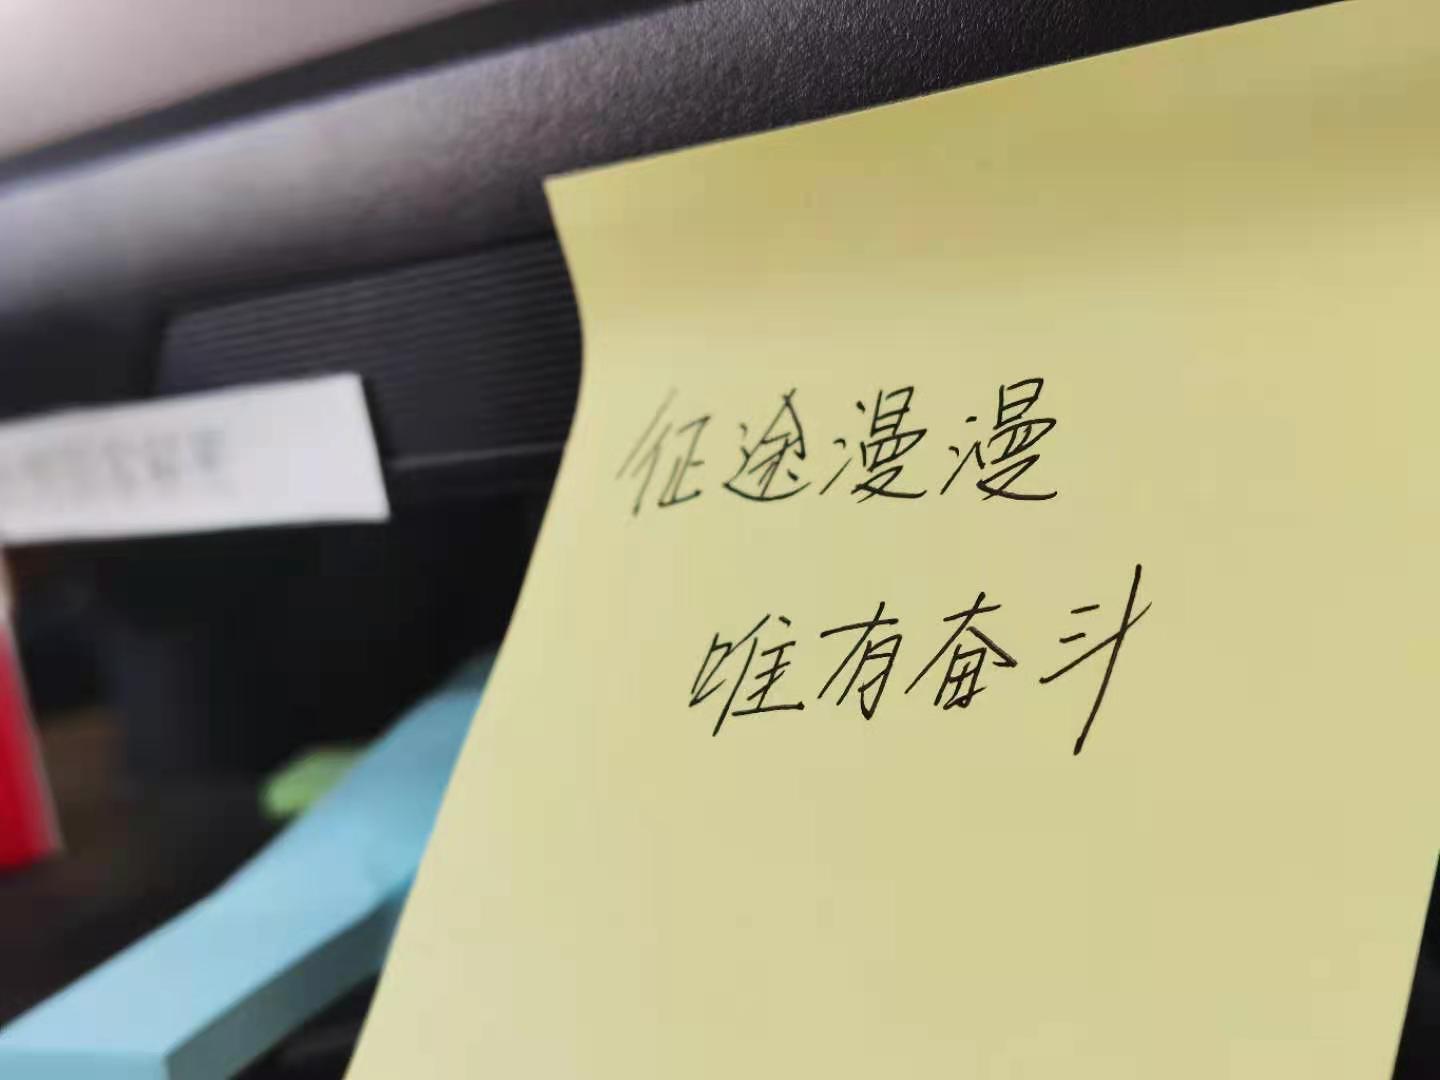 征途漫漫
唯有奋斗